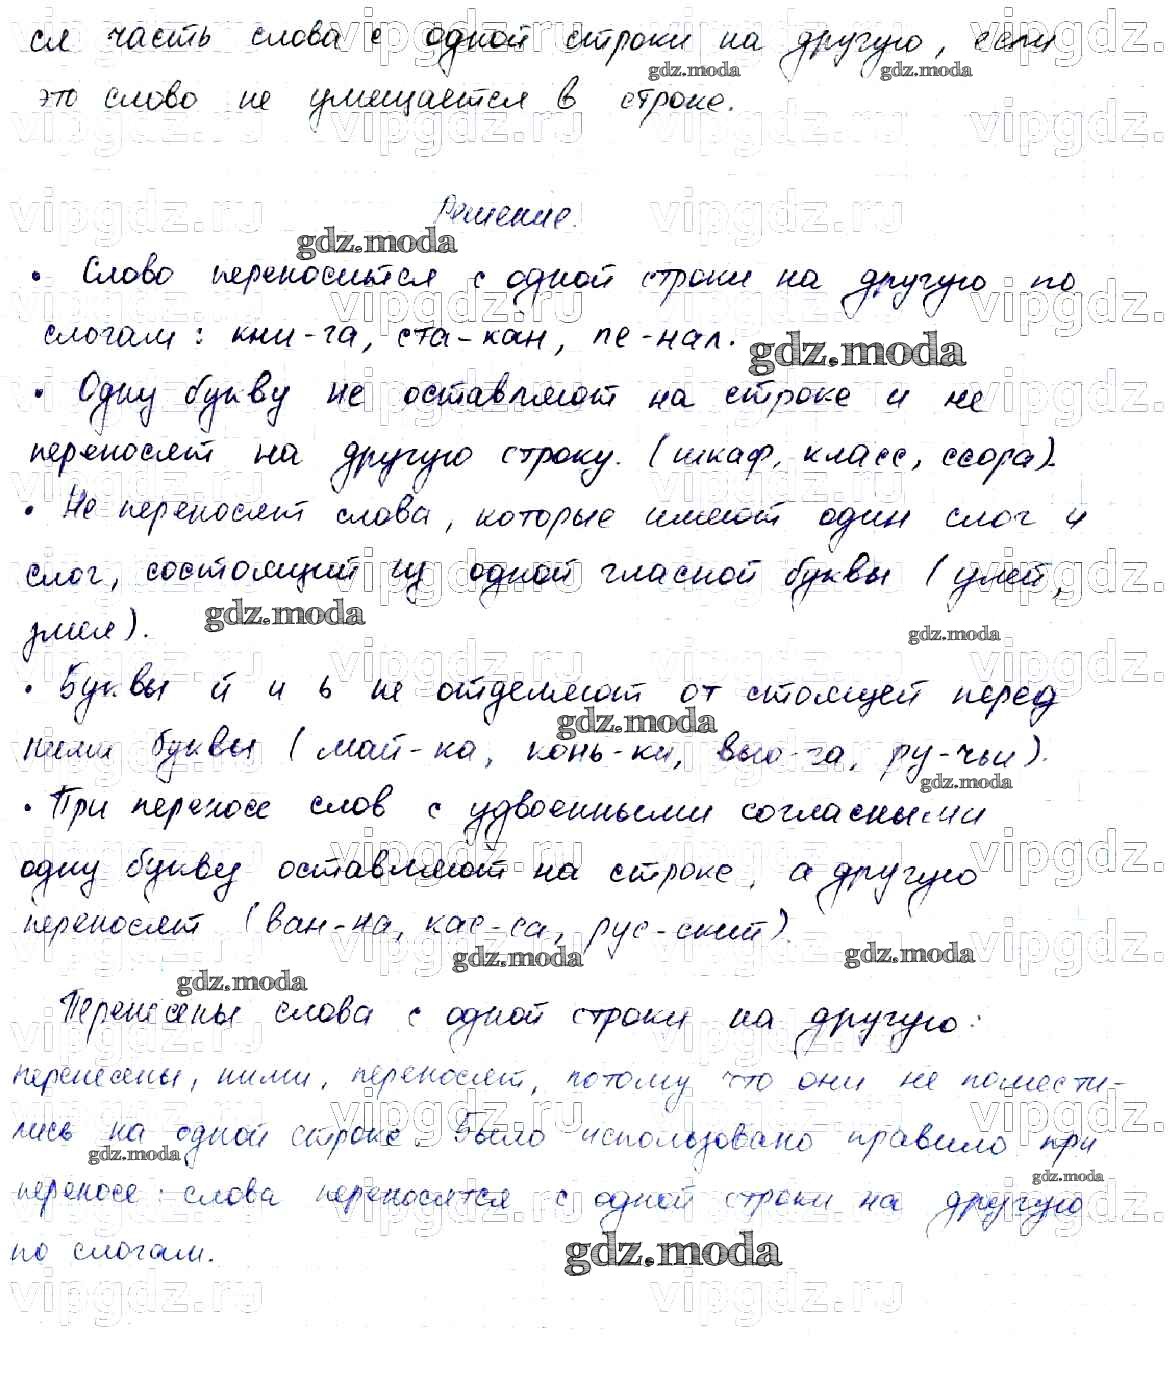 ся часть слова с одной строки на другую, если
это слово не умещается в строке.
Решение.
• Слово переносится с одной строки на другую по
слогам: кни-га, ста-кан, пе-нал.
• Одну букву не оставляют на строке и не
переносят на другую строку. (шкаф, класс, ссора).
• Не переносят слова, которые имеют один слог и
слог, состоящий из одной гласной буквы (улей,
змея).
• Буквы й и ь не отделяют от стоящей перед
ними буквы (май-ка, конь-ки, вью-га, ру-чьи).
• При переносе слов с удвоенными согласными
одну букву оставляют на строке, а другую
переносят (ван-на, кас-са, рус-ский).
Перенесены слова с одной строки на другую:
перенесены, ними, переносят, потому что они не помести-
лись на одной строке. Было использовано правило при
переносе: слова переносятся с одной строки на другую
по слогам.